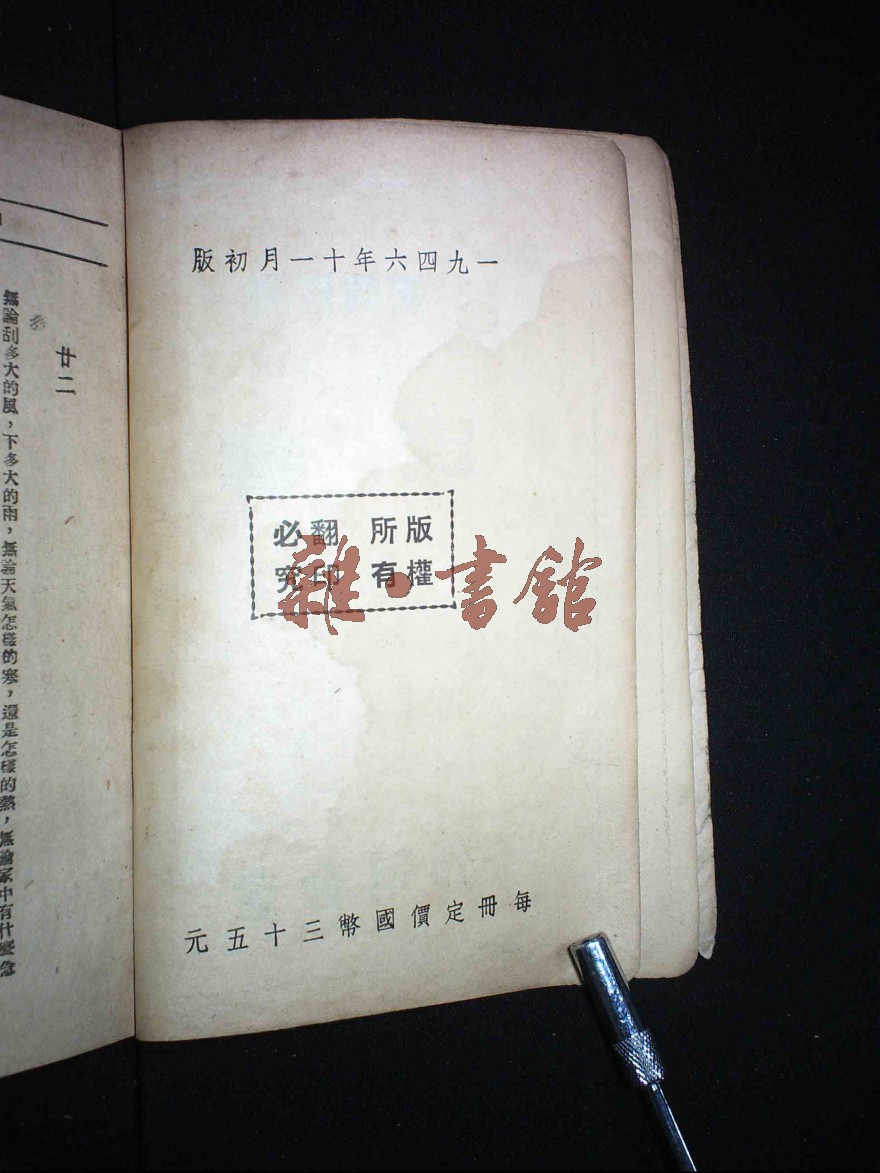 一九四六年十一月初版
版權所有
翻印必究
每冊定價國幣三十五元
雜·書館
廿二
無論刮多大的風，下多大的雨，無論天氣怎樣的寒，還是怎樣的熱，無論家中有什麼